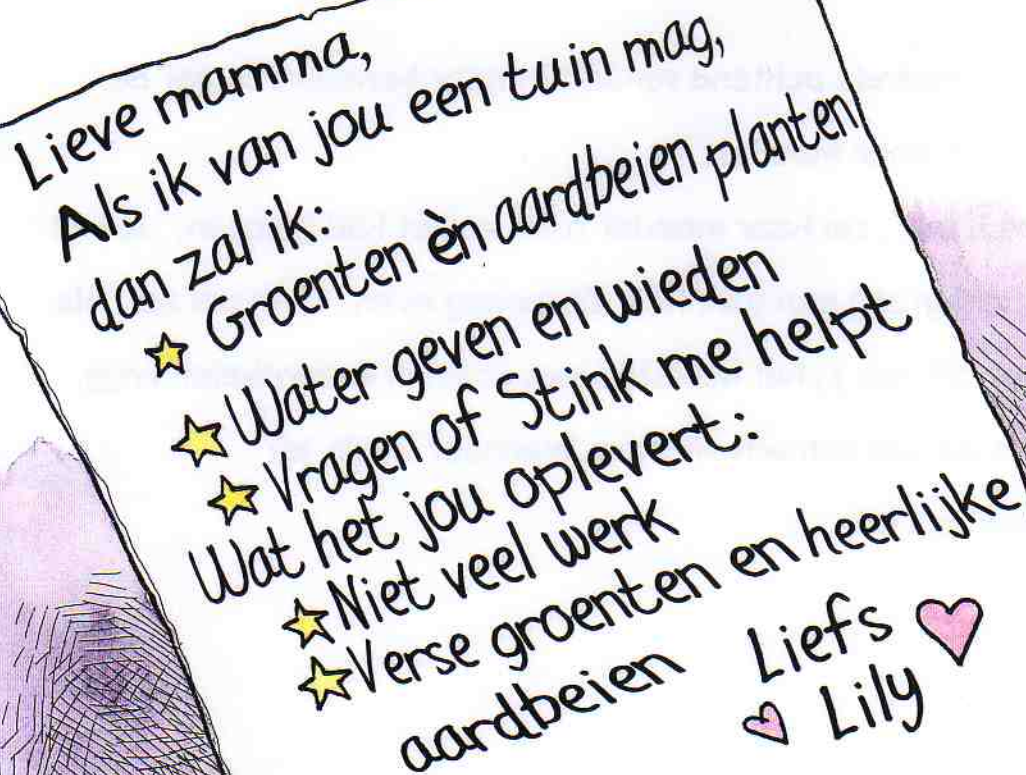 Lieve mamma,
Als ik van jou een tuin mag,
dan zal ik:
Groenten èn aardbeien planten
Water geven en wieden
Vragen of Stink me helpt
Wat het jou oplevert:
Niet veel werk
Verse groenten en heerlijke
aardbeien
Liefs
Lily